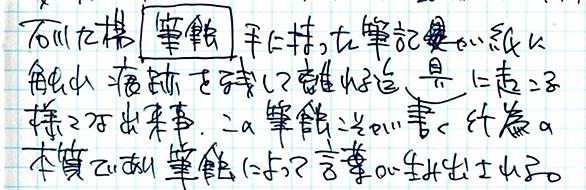 石川九楊 筆蝕 手に持った筆記具が紙に
触れ痕跡を残して離れる迄 具 に起こる
様々な出来事。この筆蝕こそが書く行為の
本質であり筆蝕によって言葉が生み出される。